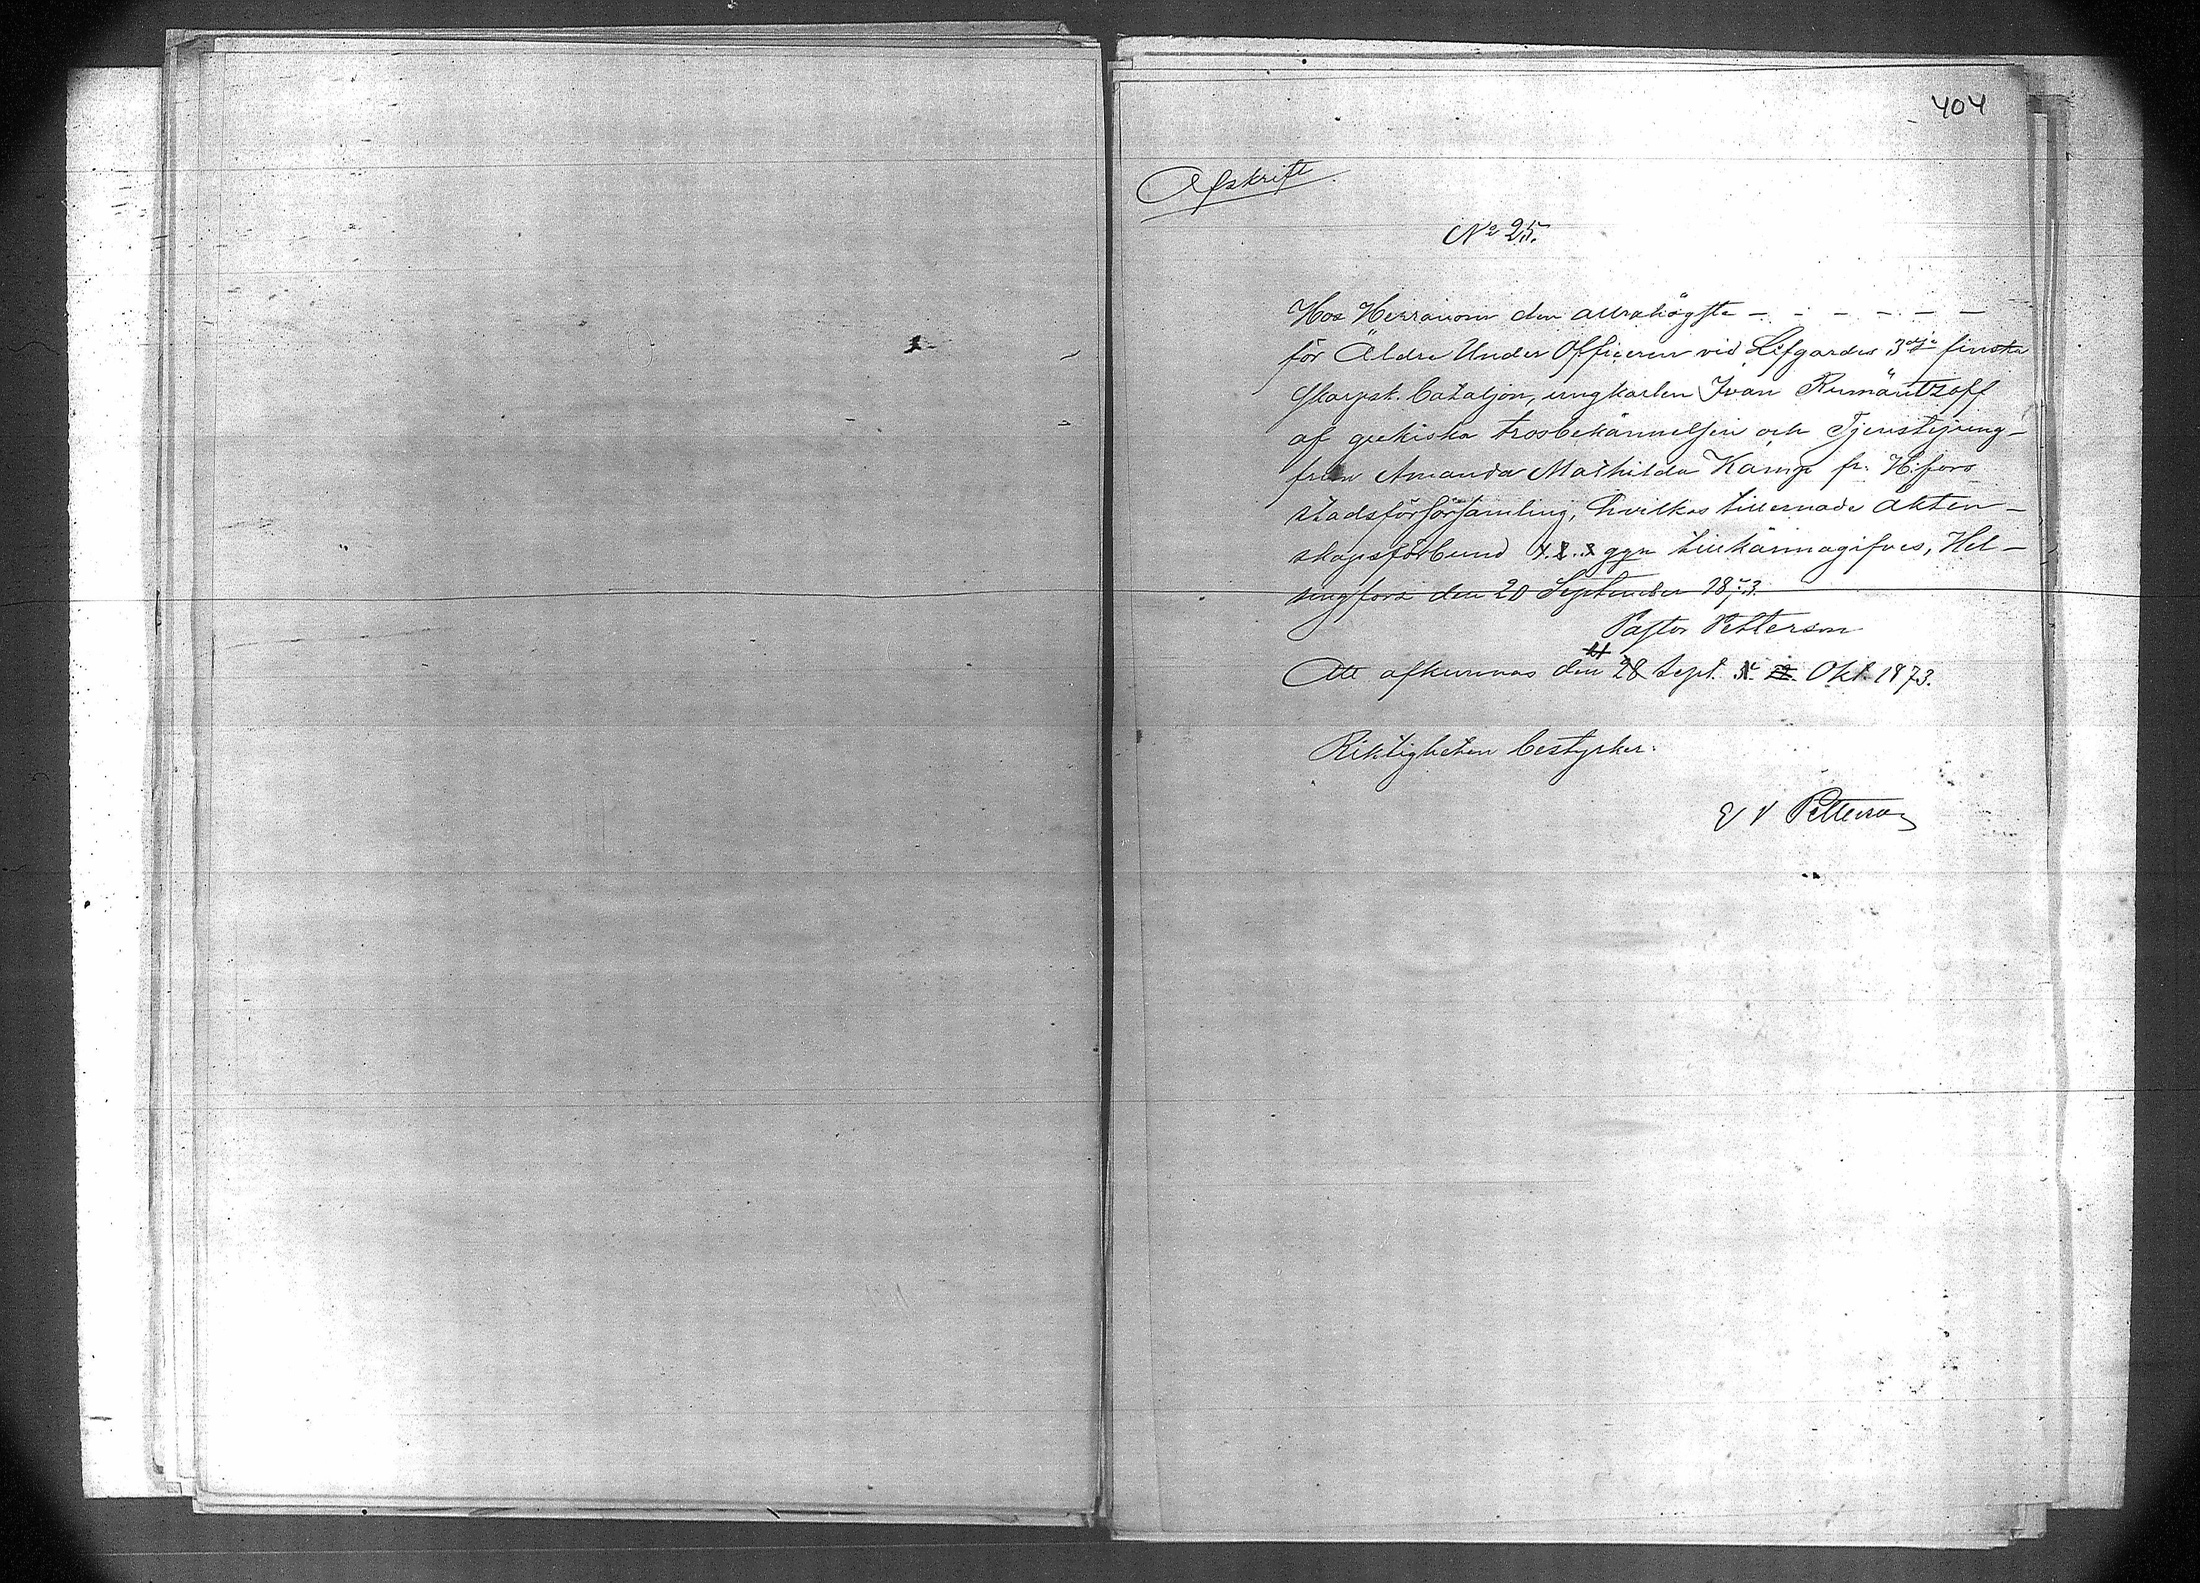 404
Afskrift.
No 25.
Hos Herranom den allrahögste – – – – – –
för Äldre Under Officeren vid Lifgardes 3dje finska
skarpsk. bataljon, ungkarlen Ivan Rumäntzoff
af grekiska trosbekännelsen och Tjenstejung-
frun Amanda Mathilda Kamp fr. H:fors
stadsförsförsamling, hvilkas tillernade äkten-
skapsförbund 1. 2. 3 ggn tillkännagifves, Hel-
singfors den 20 September 1873.
Pastor Petterson
Att afkunnas den 21 28 Sept. Okt. 1873.
Riktigheten bestyrker:
E V Petterson